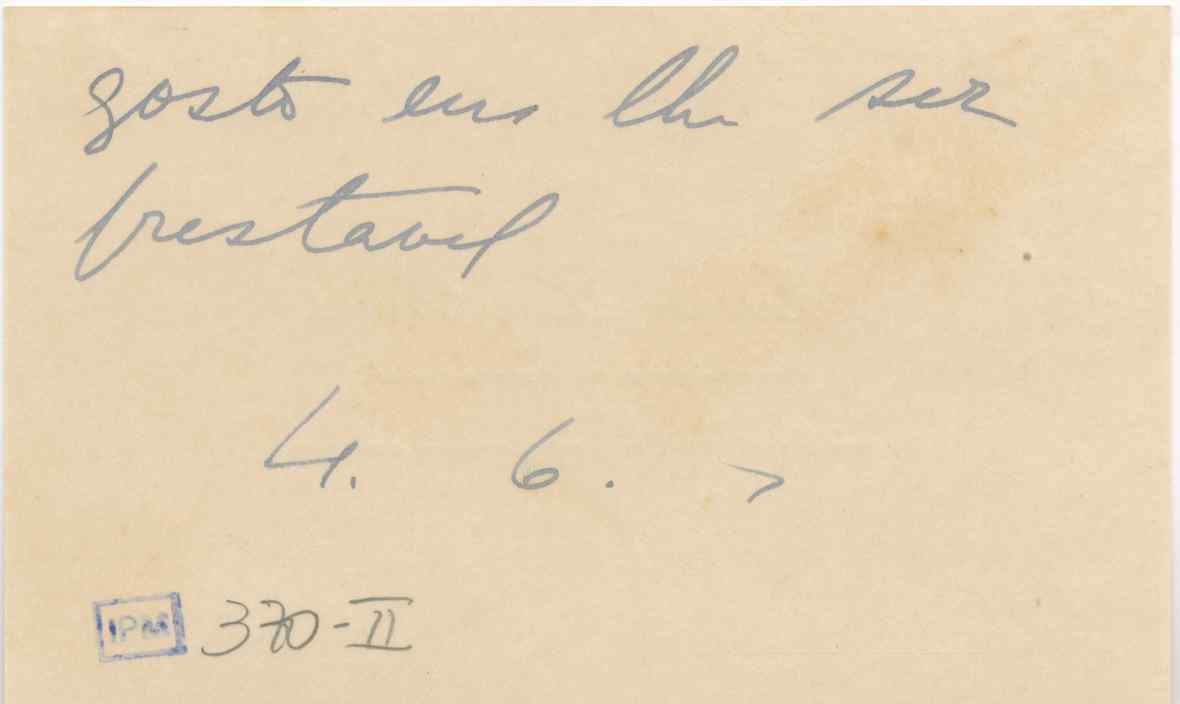 gosto em lhe ser
prestavel
4. 6. >
IPM 370-II